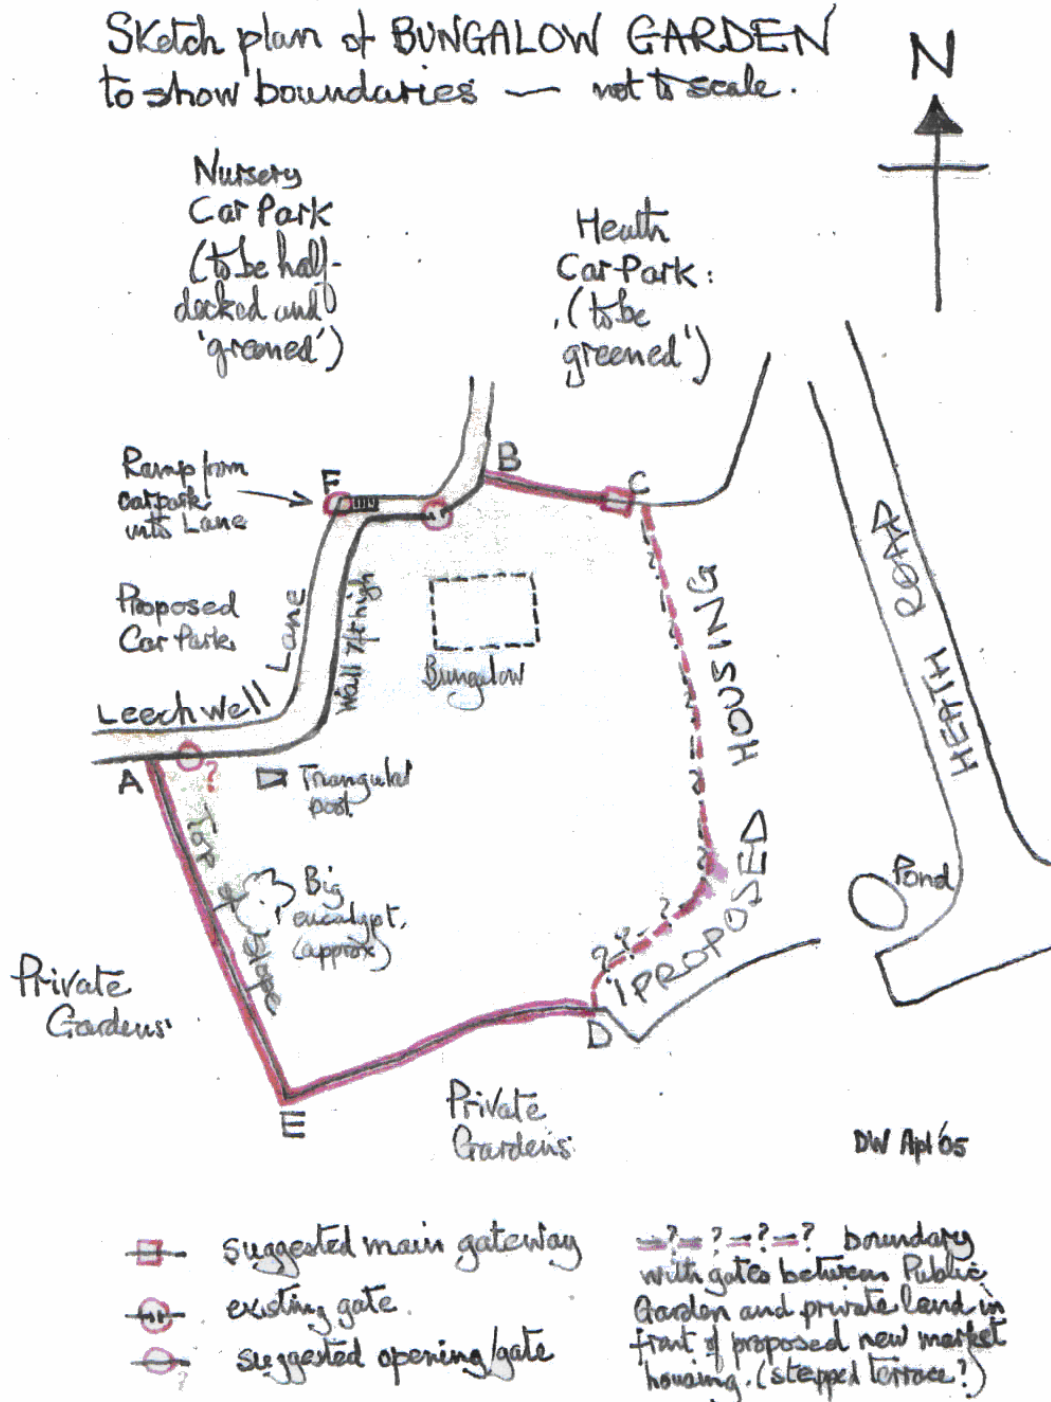 Sketch plan of BUNGALOW GARDEN
to show boundaries — not to scale.
N
Nursery
Car Park
(to be half-
decked and
'greened')
Heath
Car Park:
(to be
greened')
Ramp from
carpark
into Lane
F
B
C
Proposed
Car Park
Leechwell Lane
Wall 7ft high
Bungalow
HOUSING
HEATH ROAD
A
?
Triangular
pool
Top of slope
Big
eucalypt.
(approx)
Pond
PROPOSED
Private
Gardens
D
E
Private
Gardens
DW Apl '05
suggested main gateway
existing gate.
suggested opening/gate
?
—?—?—?—? boundary
with gates between Public
Garden and private land in
front of proposed new market
housing. (stepped terrace?)